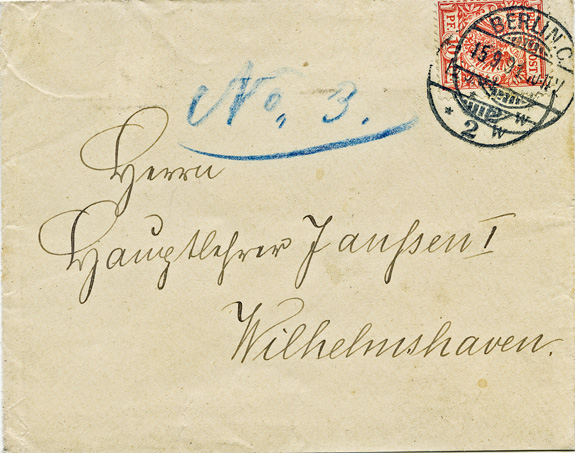 BERLIN.C.
15.9.9
* 2 w
w
No, 3.
Herrn
Hauptlehrer Janssen I
Wilhelmshaven.